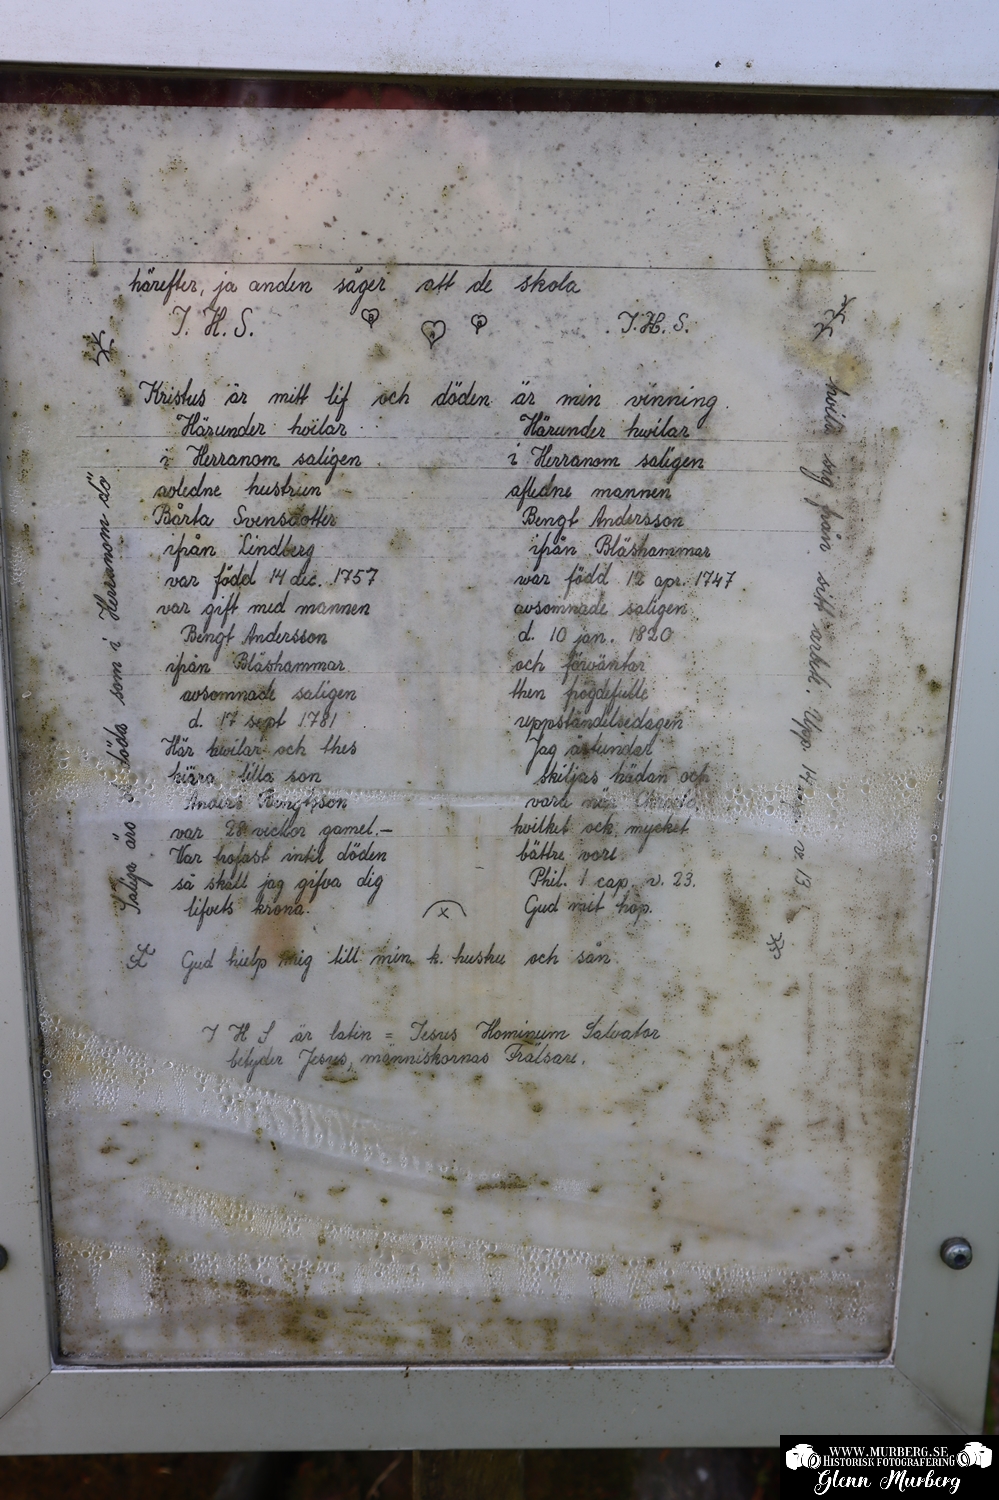 härefter, ja anden säger att de skola
I. H. S. I. H. S.
Kristus är mitt lif och döden är min vinning.
Härunder hvilar
i Herranom saligen
avledne hustrun
Bårta Svensdotter
ifrån Lindberg
var född 14 dec. 1757
var gift med mannen
Bengt Andersson
ifrån Blåshammar
avsomnade saligen
d. 17 sept 1781
Här hwilar och thes
kiära lilla son
Anders Bengtsson
var 28 veckor gamel.-
Var trofast intil döden
så skall jag gifva dig
lifvets krona.
Härunder hwilar
i Herranom saligen
afledne mannen
Bengt Andersson
ifrån Blåshammar
war född 12 apr. 1747
avsomnade saligen
d. 10 jan. 1820
och förväntar
then frögdefulle
uppståndelsedagen
Jag åstundar
skiljas hädan och
vara när Christo
hvilket ock mycket
bättre vore.
Phil. 1 cap. v. 23.
Gud mit hop.
Gud hielp mig till min k. hustru och sån.
I H S är latin = Jesus Hominum Salvator
betyder Jesus, människornas Frälsare.
Saliga äro döda som i Herranom dö
hvila sig från sitt arbet. Upp. 14 v. 13.
WWW.MURBERG.SE
HISTORISK FOTOGRAFERING
Glenn Murberg